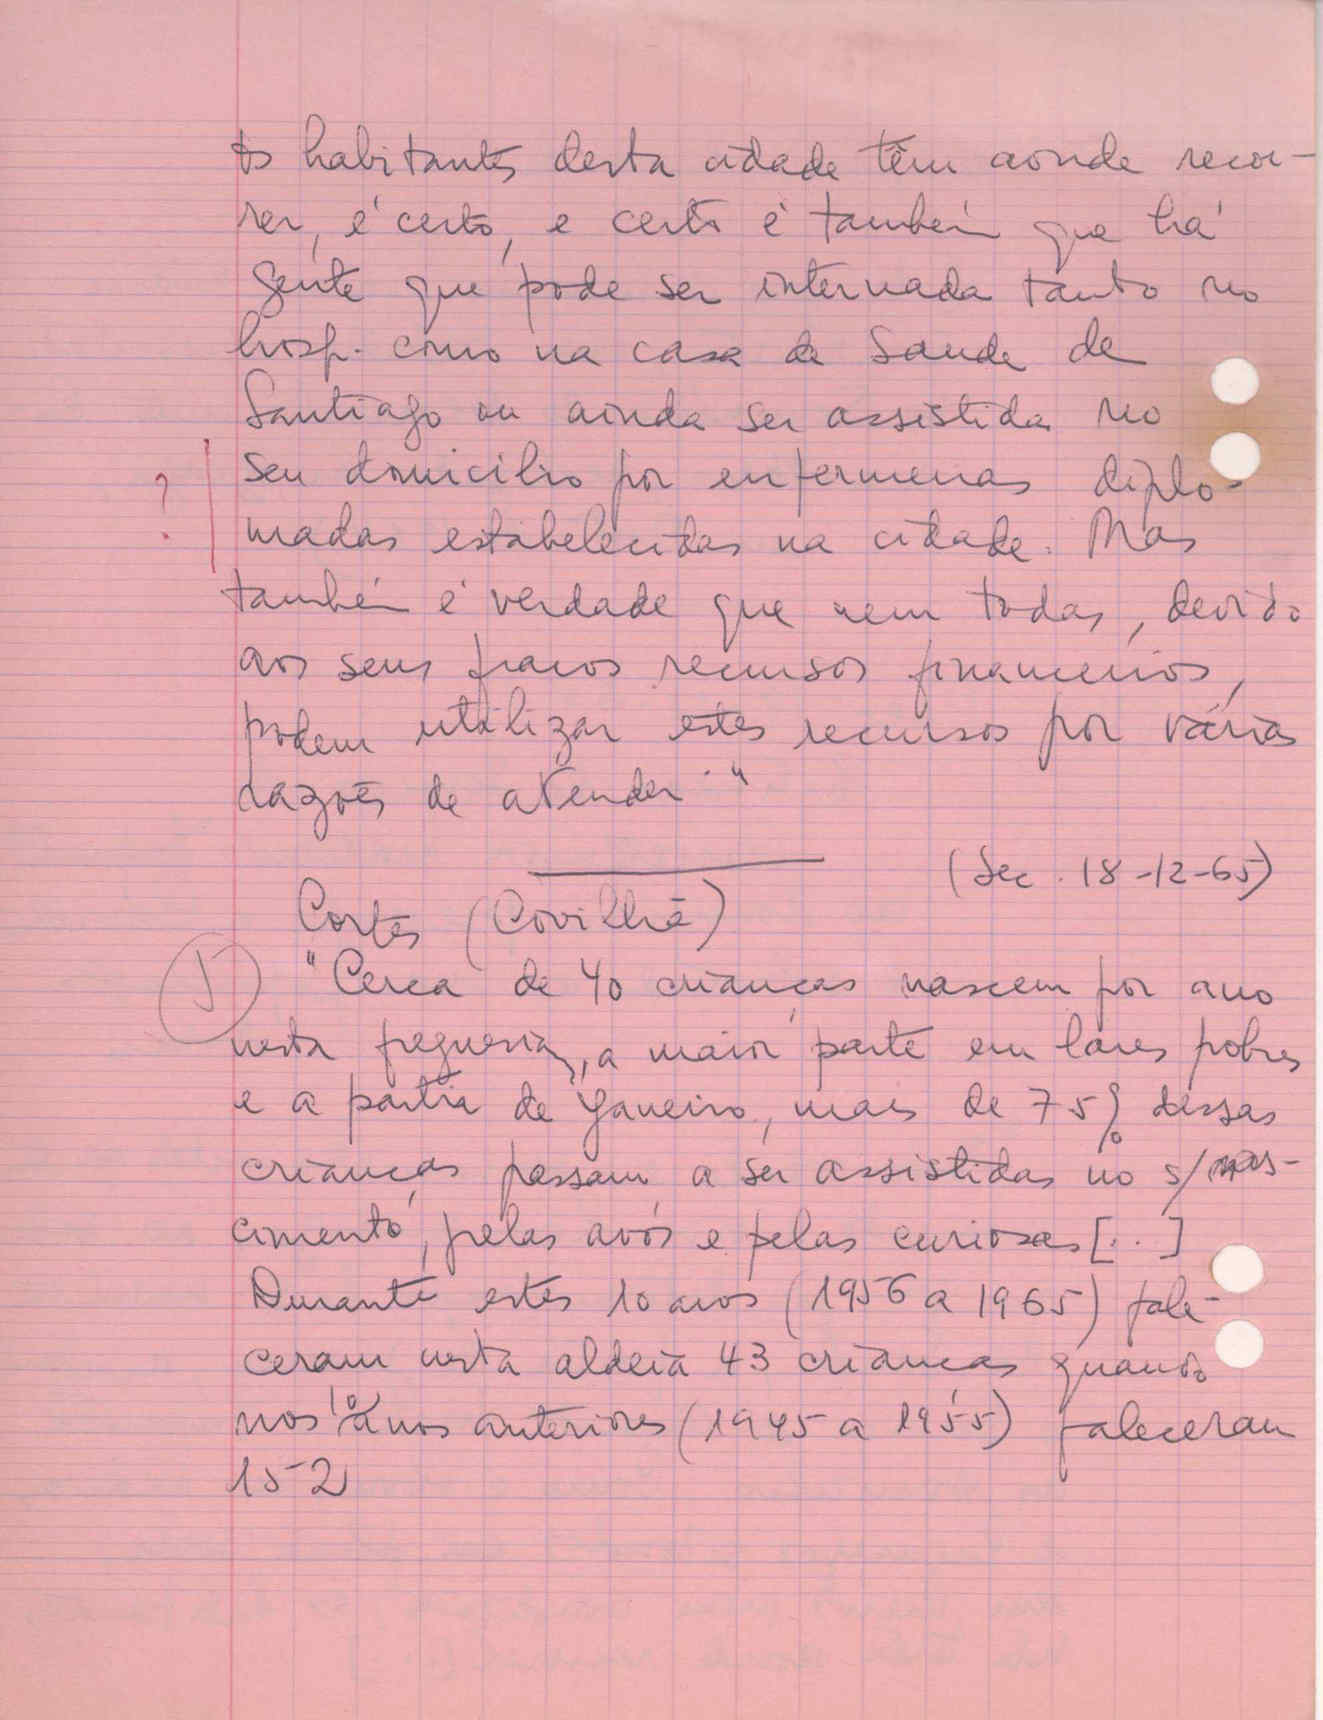 Os habitantes desta cidade têm aonde recor-
rer, é certo, e certo é também que há
gente que pode ser internada tanto no
hosp. como na casa de Saude de
Santiago ou ainda ser assistida no
seu domicílio por enfermeiras diplo-
? madas estabelecidas na cidade. Mas
também é verdade que nem todas, devido
aos seus fracos recursos financeiros,
podem utilizar estes recursos por várias
razões de atender."
(Sec. 18-12-65)
Cortes (Covilhã)
5 "Cerca de 40 crianças nascem por ano
nesta freguesia, a maior parte em lares pobres
e a partir de Janeiro, mais de 75% dessas
crianças passam a ser assistidas no s/ nas-
cimento, pelas avós e pelas curiosas [..]
Durante estes 10 anos (1956 a 1965) fale-
ceram nesta aldeia 43 crianças quando
nos 10 anos anteriores (1945 a 1955) faleceram
152